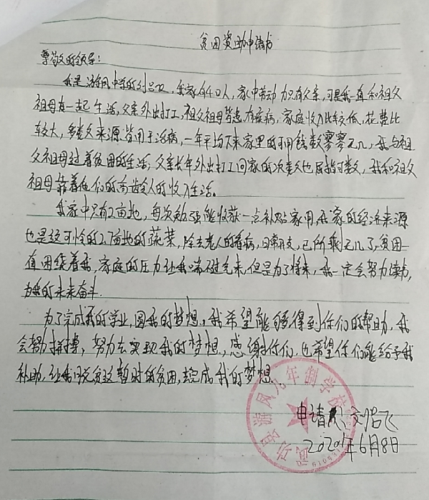 贫困资助申请书
尊敬的领导:
我是游凤中学的刘 ,全家有4口人,家中劳动力只有父亲,可是我一直和祖父
祖母在一起生活,父亲外出打工,祖父祖母皆患有疾病,家庭收入比较低,花费比
较大,多数来源皆用于治病,一年平均下来家里的可用钱数寥寥无几,我与祖
父祖母过着贫困的生活,父亲长年外出打工回家的次数也屈指可数,我和祖父
祖母靠着他们的 收入生活。
我家中只有2亩地,每次勉强能收获一点补贴家用,我家的经济来源
也是这可怜的2亩地的蔬菜,除去老人的看病,日常开支,已所剩无几了,贫困一
直困绕着我,家庭的压力让我 ,但是为了将来,我一定会努力读书,
为我的未来奋斗。
为了完成我的学业,圆我的梦想,我希望能够得到你们的帮助,我
会努力拼搏,努力去实现我的梦想,感谢你们,也希望你们能给予我
补助,让我脱离这暂时的贫困,完成我的梦想。
武功县游凤九年制学校
申请人: 飞
2020年6月8日